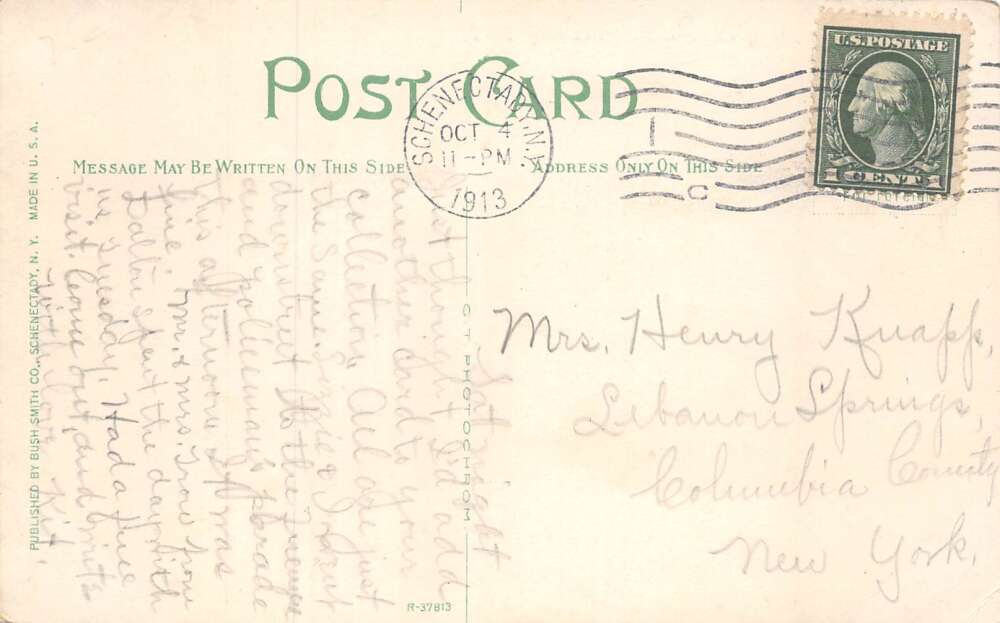 POST CARD
MESSAGE MAY BE WRITTEN ON THIS SIDE
ADDRESS ONLY ON THIS SIDE
SCHENECTADY, N.Y.
OCT 4
11-PM
1913
C
U.S. POSTAGE
1 CENT 1
Sat. night
Just thought I'd add
another card to your
collection. Am ade just
the same. Susie & I went
down street to the Firemen
and policeman's parade
this afternoon. It was
fine. Mr. & Mrs. Trow from
Dalton spent the day with
us Tuesday. Had a fine
visit. Come out, and write
With love Kit.
Mrs. Henry Knapp,
Lebanon Springs,
Columbia County
New York.
PUBLISHED BY BUSH SMITH CO., SCHENECTADY, N. Y. MADE IN U. S. A.
C T PHOTOCHROM
R-37813